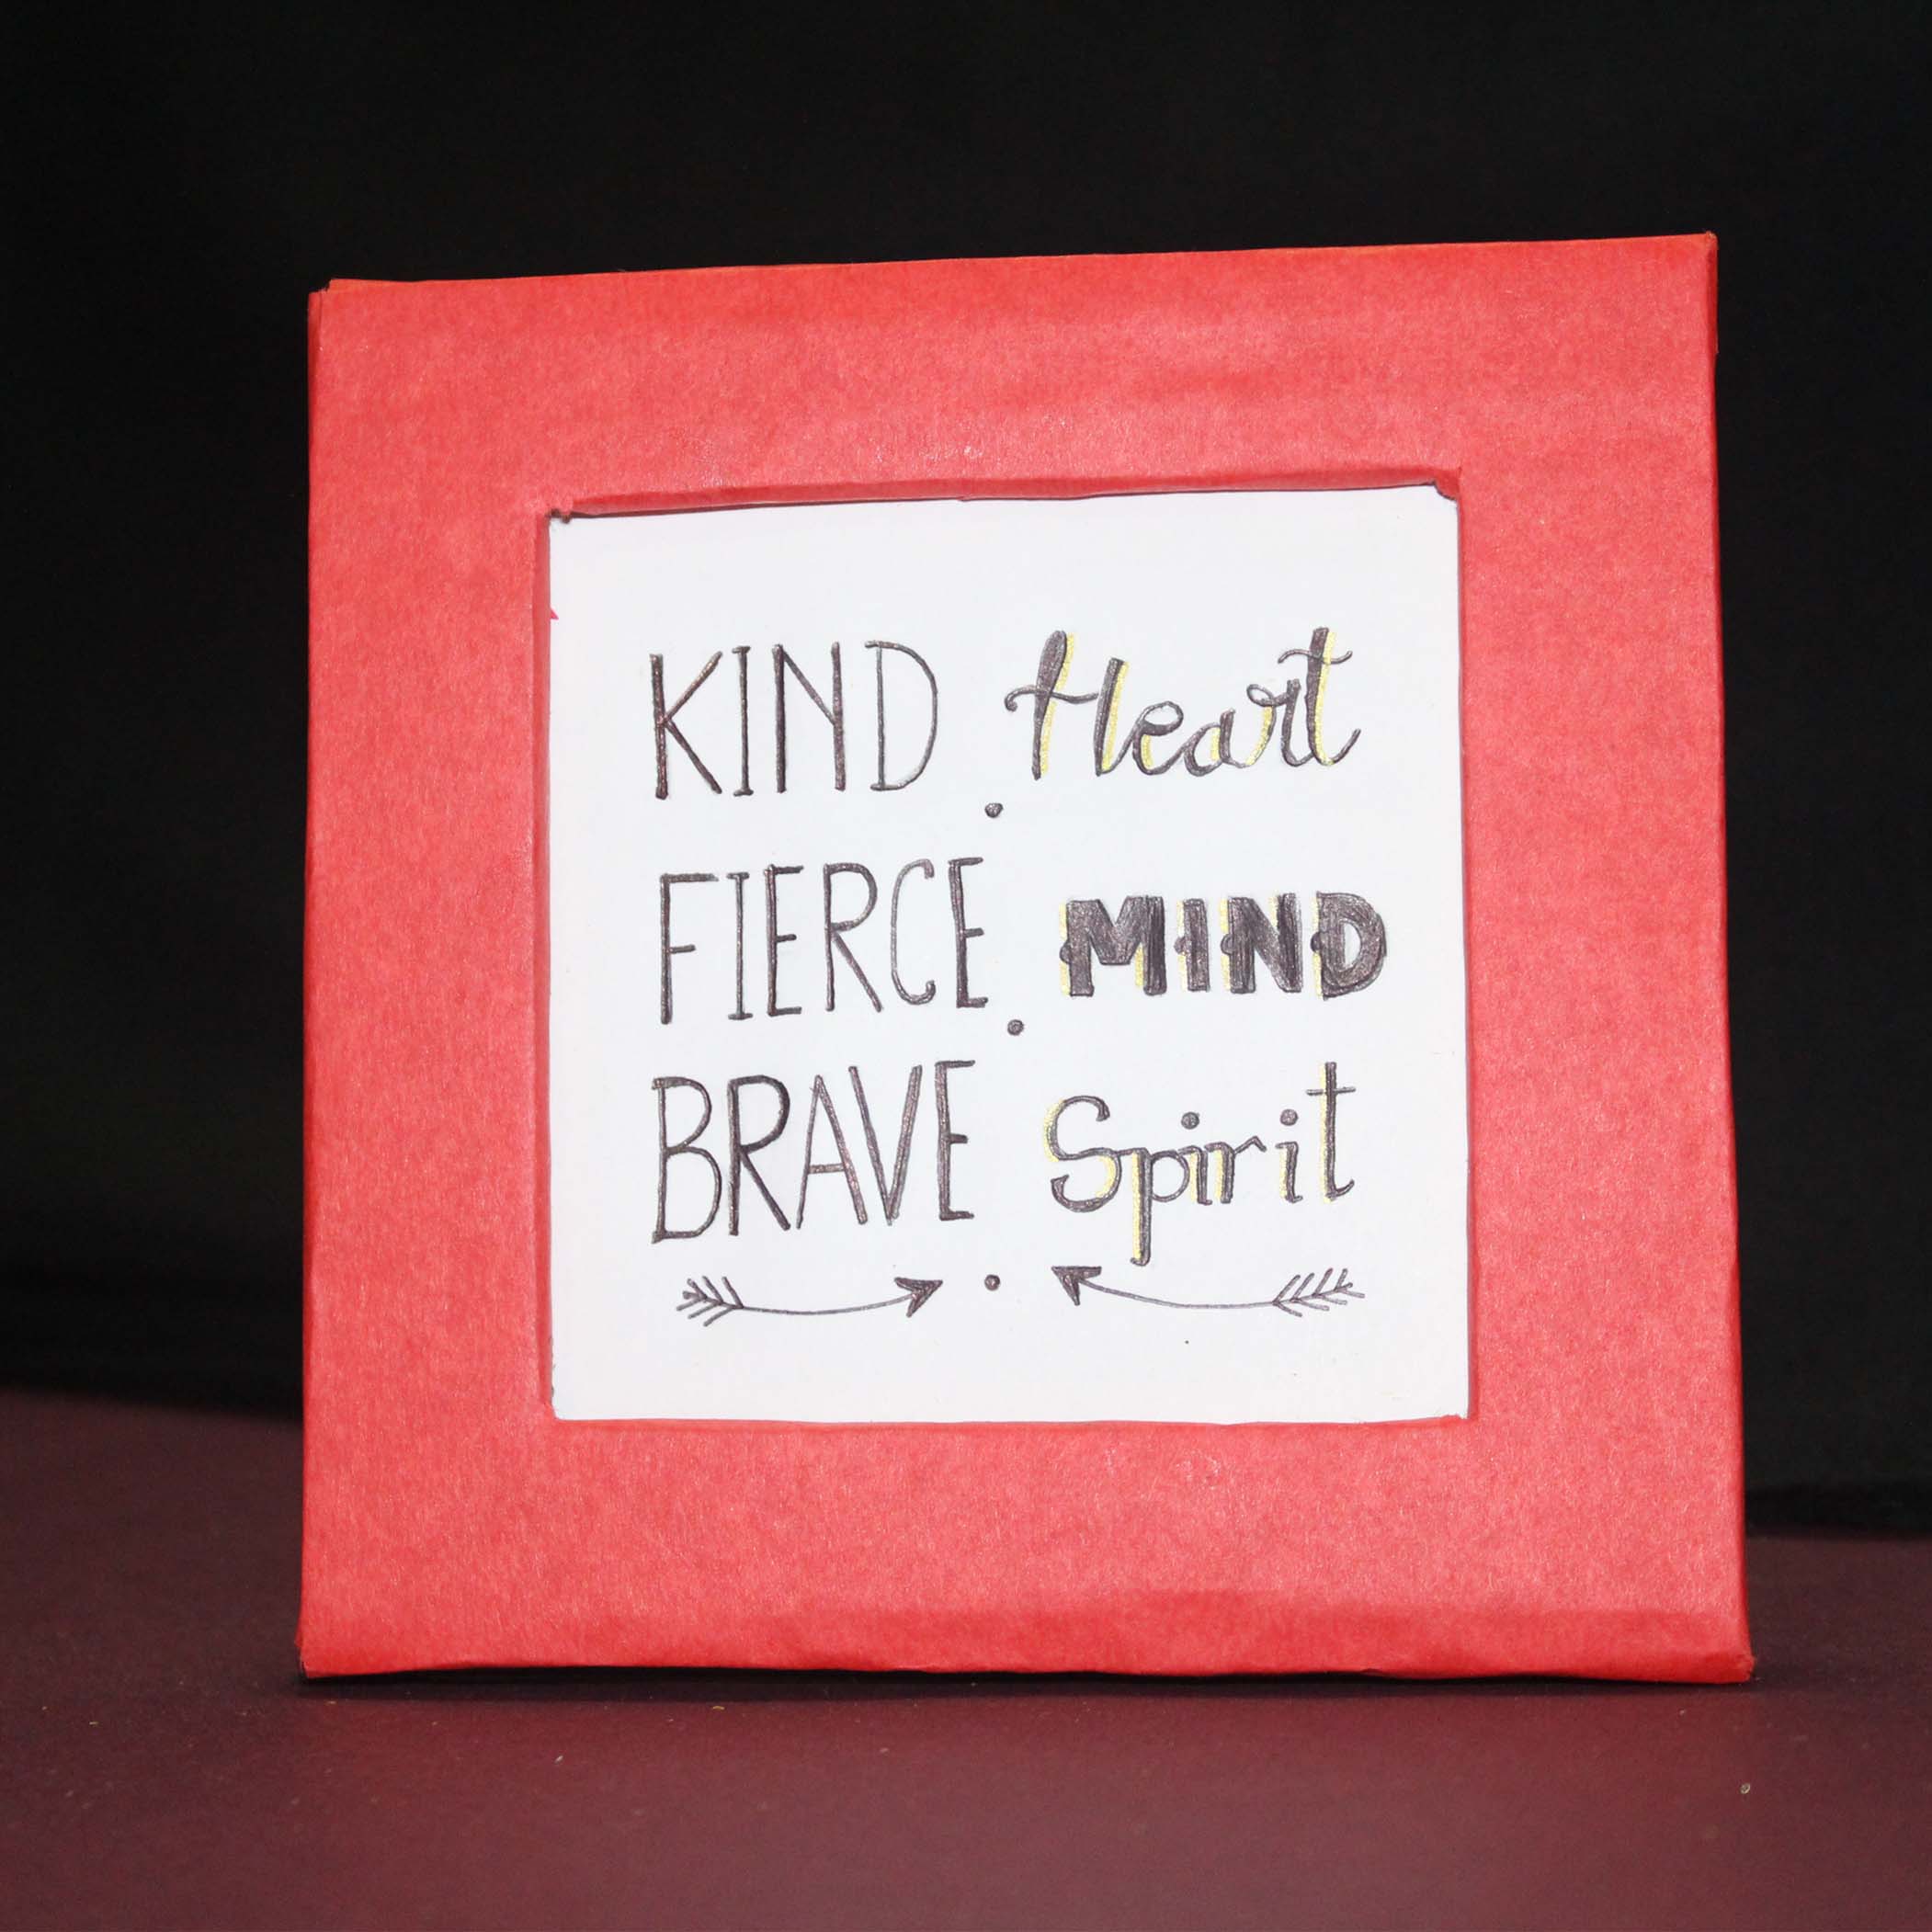 KIND Heart
FIERCE MIND
BRAVE Spirit